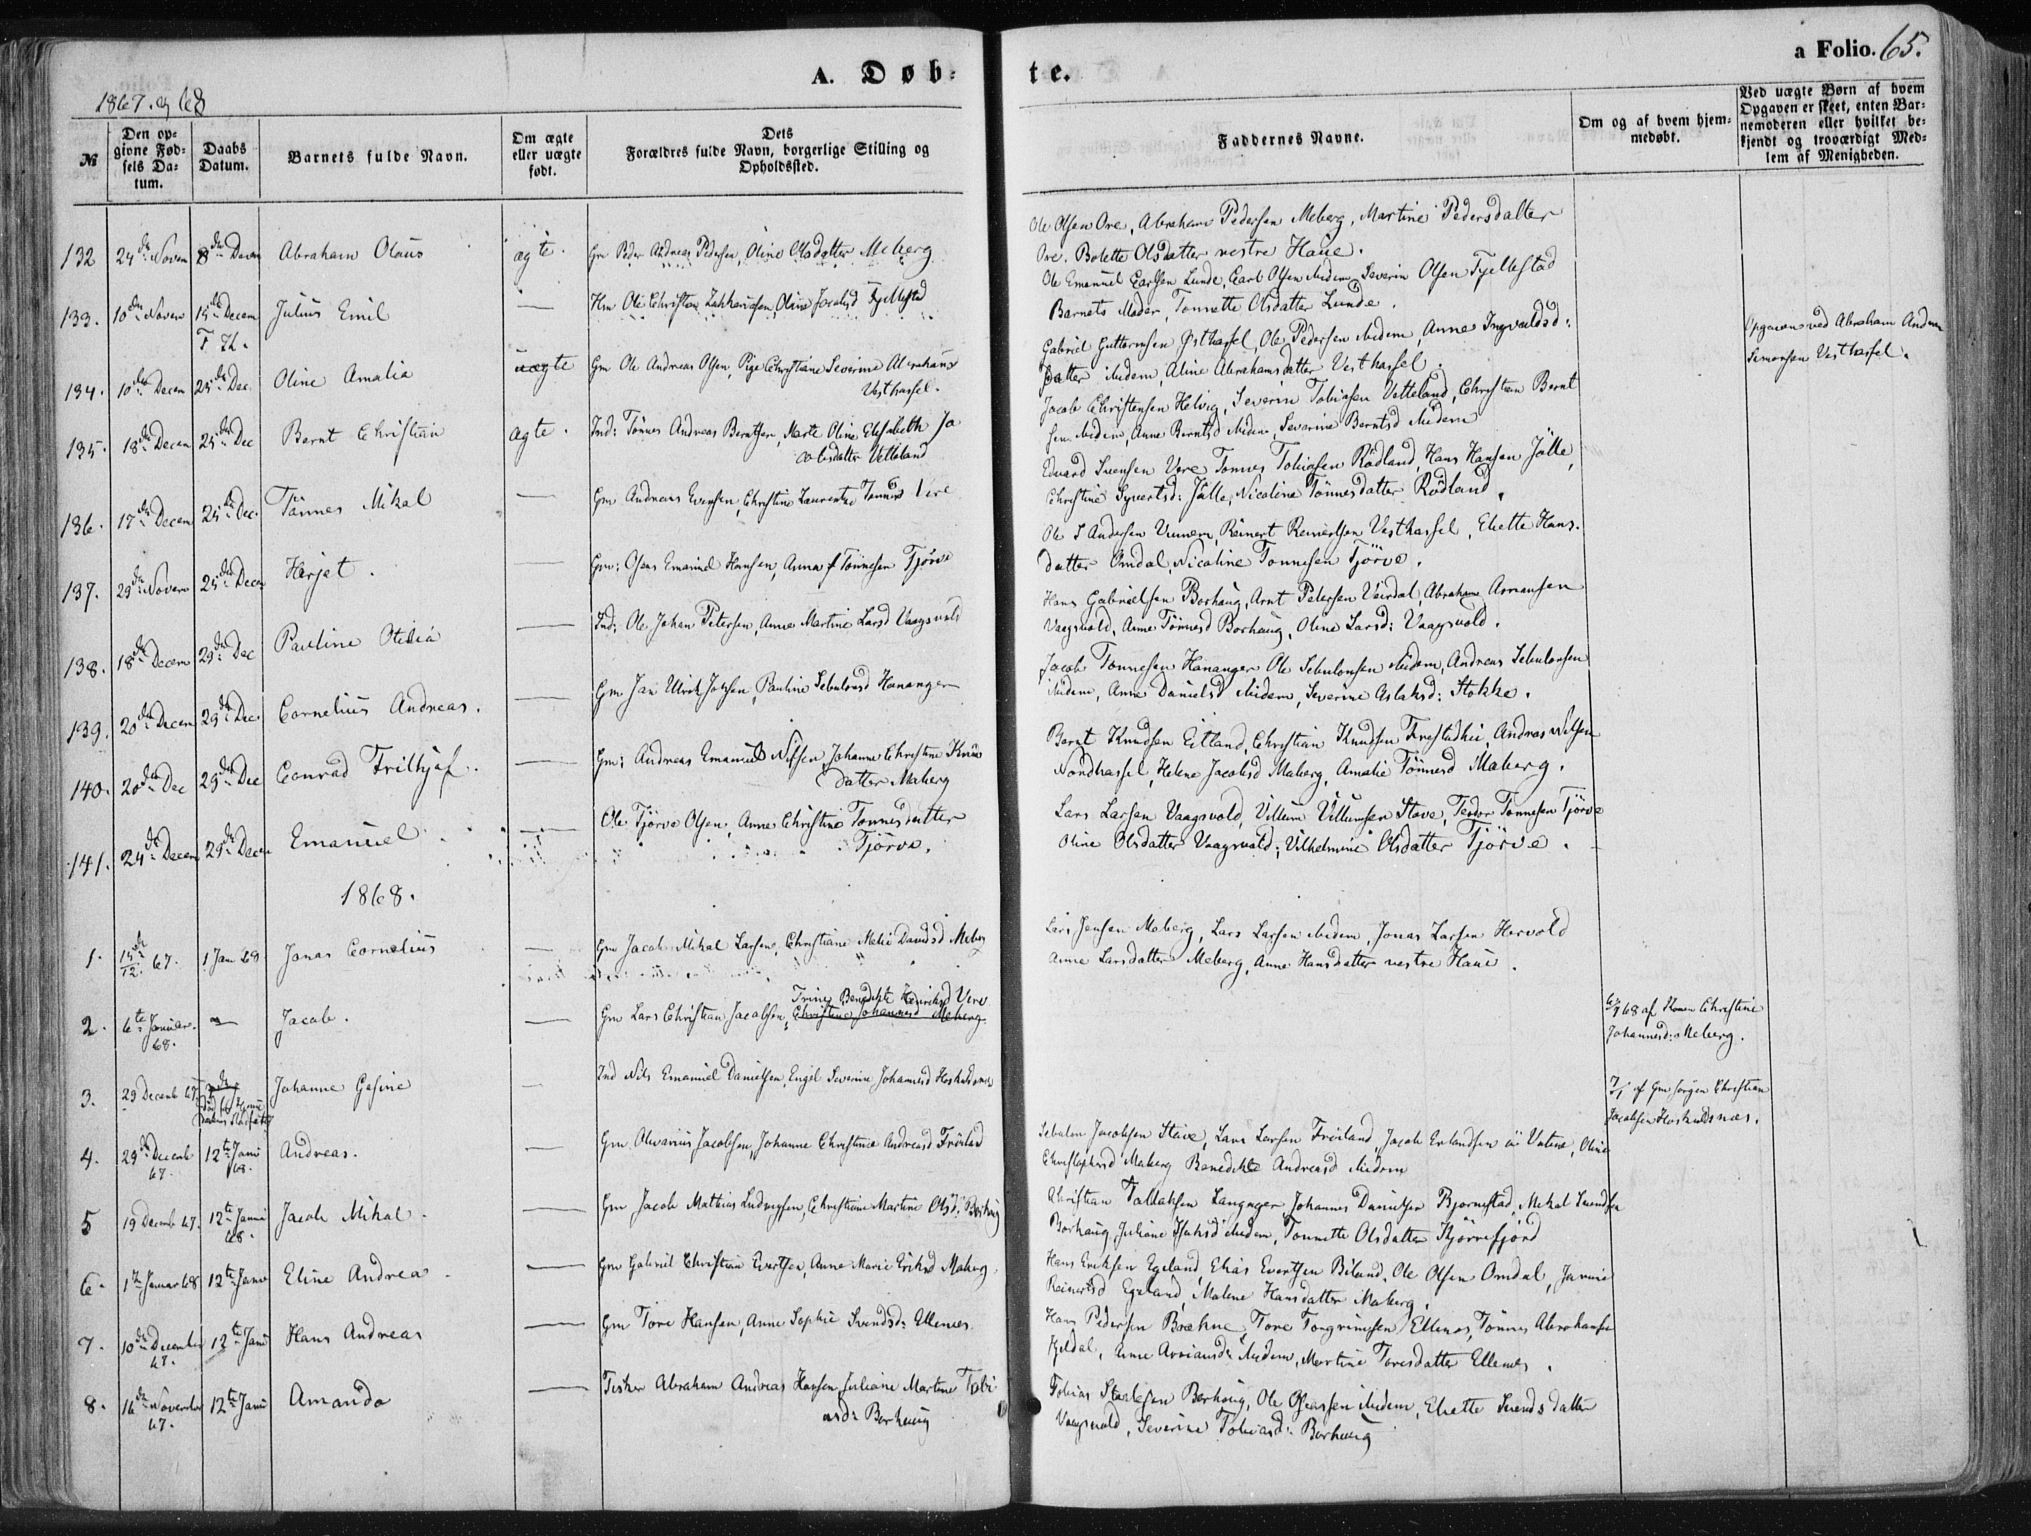 A. Døb-
te.
a Folio. 65.
1867. og 68
№
Den op-
givne Fød-
sels Da-
tum.
Daabs
Datum.
Barnets fulde Navn.
Om ægte
eller uægte
født.
Dets
Forældres fulde Navn, borgerlige Stilling og
Opholdssted.
Faddernes Navne.
Om og af hvem hjem-
medøbt.
Ved uægte Børn af hvem
Opgaven er skeet, enten Bar-
nemoderen eller hvilket be-
kjendt og troværdigt Med-
lem af Menigheden.
132 24de Novem 8de Decem Abraham Olaus ægte. Gm Peder Andreas Pedersen, Oline Olsdatter Meberg
Ole Olsen Ore, Abraham Pedersen Meberg, Martine Pedersdatter
Ore. Bolette Olsdatter vestre Haue.
133. 10de Novem 15de Decem Julius Emil — Hm Ole Christian Zakkariasen, Oline Jacobsd Fjellestad
F Th.
Ole Emanuel Carlsen Lunde, Carl Olsen ibidem, Severin Olsen Fjellestad
Barnets Moder, Tonnette Olsdatter Lunde.
134. 10de Decem 25de Dec. Oline Amalia uægte Gm Ole Andreas Olsen, Pige Christiane Severine Abrahams
Vesthassel.
Gabriel Guttormsen Østhassel, Ole Pedersen ibidem, Anne Ingvaldsd:
datter ibidem, Aline Abrahamsdatter Vesthassel.
Opgaven ved Abraham Andreas
Simonsen Vesthassel.
135. 18de Decem 25de Dec Bernt Christian ægte. Ind: Tønnes Andreas Berntsen, Marte Oline Elisabeth Ja
cobsdatter Vetteland
Jacob Christensen Helvig, Severin Tobiasen Vetteland, Christian Bernt
sen ibidem, Anne Berntsd ibidem, Severine Berntsd ibidem
136. 17de Decem 25de Dec. Tønnes Mikal — Gm Andreas Evensen, Christine Laurentze Tønnesd Vere
Edvard Svensen Vere Tønnes Tobiasen Rødland, Hans Hansen Jølle,
Christine Syvertsd: Jølle, Nicoline Tønnesdatter Rødland.
137. 29de Novem 25de Decem Herjet. — Gm: Osas Emanuel Hansen, Anna Tønnesen Tjørve
Ole S Andersen Vumem, Reinert Reinertsen Vesthassel, Eliette Hans.
datter Omdal, Nicoline Tønnesen Tjørve.
138. 18de Decem 29de Dec Pauline Otilia — Ind: Ole Johan Petersen, Anne Martine Larsd Vaagsvold
Hans Gabrielsen Borhaug, Arnt Petersen Veirdal, Abraham Asmansen
Vaagsvold, Anne Tønnesd Borhaug, Oline Larsd: Vaagsvold.
139. 20de Decem 29de Dec. Cornelius Andreas. — Gm Jan Ulrik Jahsen, Pauline Sebulonsd Hananger
Jacob Tønnesen Hananger Ole Sebulonsen ibidem, Andreas Sebulonsen
ibidem, Anne Danielsd ibidem, Severine Aslaksd: Stokke.
140. 20de Dec 29de Dec Conrad Frithjof. — Gm: Andreas Emanuel Nilsen, Johanne Christine Knuds
datter Maberg
Bernt Knudsen Eitland, Christian Knudsen Frestadhei, Andreas Nilsen
Nordhassel, Helene Jacobsd Maberg, Amalie Tønnesd Maberg.
141. 24de Decem 29de Decem Emanuel — Ole Tjørve Olsen, Anne Christine Tønnesdatter
Tjørve.
Lars Larsen Vaagsvold, Villum Villumsen Stave, Tedor Tønnesen Tjørve
Oline Olsdatter Vaagsvold; Vilhelmine Olsdatter Tjørve.
1868.
1. 15de/12. 67. 1 Jan 68 Jonas Cornelius — Gm Jacob Mikal Larsen, Christiane Malie Davidsd Meberg
Lars Jensen Meberg, Lars Larsen ibidem, Jonas Larsen Hervold
Anne Larsdatter Meberg, Anne Hansdatter vestre Haue.
2. 6te Januar 68. — Jacob. — Gm Lars Christian Jacobsen, Christine Johannesd Meberg.
Trine Benedikte Henriksd Vere
6/1 68 af Konen Christine
Johannesd: Meberg.
3. 29 Decemb 67 Johanne Gesine — Ind Nils Emanuel Danielsen, Engel Severine Johannesd Hoskuldsnæs
7/1 af Gm Jørgen Christian
Jacobsen Hoskuldsnæs.
4. 29de Decemb 67. 12te Janu 68. Andreas. — Gm Olevarius Jacobsen, Johanne Christine Andreasd Frøiland
Sebulon Jacobsen Stave, Lars Larsen Frøiland, Jacob Erlandsen Vatne, Oline
Christophersd Maberg Benedikte Andreasd ibidem
5 19 Decemb 67. 12te Janu 68. Jacob Mikal. — Gm Jacob Mathias Ludvigsen, Christiane Martine Olsd: Borhaug
Christian Tallaksen Langager, Johannes Danielsen Bjørnestad, Mikal Svendsen
Borhaug, Juliane Isaksd ibidem, Tonnette Olsdatter Kjørrefjord
6. 1te Januar 68 12te Janu Eline Andrea — Gm Gabriel Christian Evertsen, Anne Marie Eriksd Maberg.
Hans Eriksen Egeland, Elias Evertsen Biland, Ole Olsen Omdal, Janine
Reinertsd Egeland, Malene Hansdatter Maberg.
7. 10de December 67. 12te Janu Hans Andreas — Gm Tore Hansen, Anne Sophie Svendsd: Ellenes.
Hans Pedersen Bræhne, Tore Torgrimsen Ellenes, Tønnes Abrahamsen
Kjeldal, Anne Arriansd: ibidem, Martine Toresdatter Ellenes.
8. 16de November 67. 12te Janu Amanda — Fisker Abraham Andreas Hansen, Juliane Martine Tobi
asd: Borhaug
Tobias Staalesen Borhaug, Ole Oseassen ibidem, Eliette Svendsdatter
Vaagsvold, Severine Tobiasd: Borhaug